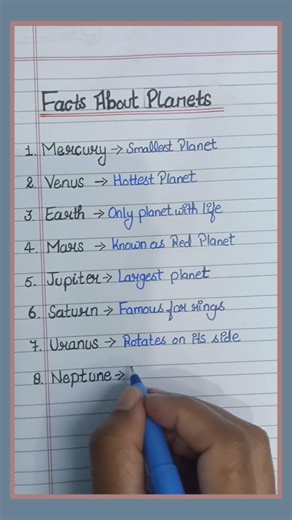 Facts About Planets
1. Mercury → Smallest Planet
2. Venus → Hottest Planet
3. Earth → Only planet with life
4. Mars → Known as Red Planet
5. Jupiter → Largest planet
6. Saturn → Famous for rings
7. Uranus → Rotates on its side
8. Neptune →